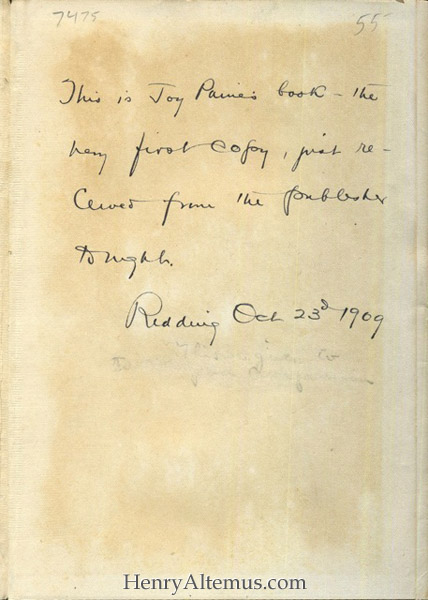 7475
55
This is Joy Paine's book – the
very first copy, just re-
ceived from the publisher
tonight.
Redding Oct 23d 1909
to
HenryAltemus.com